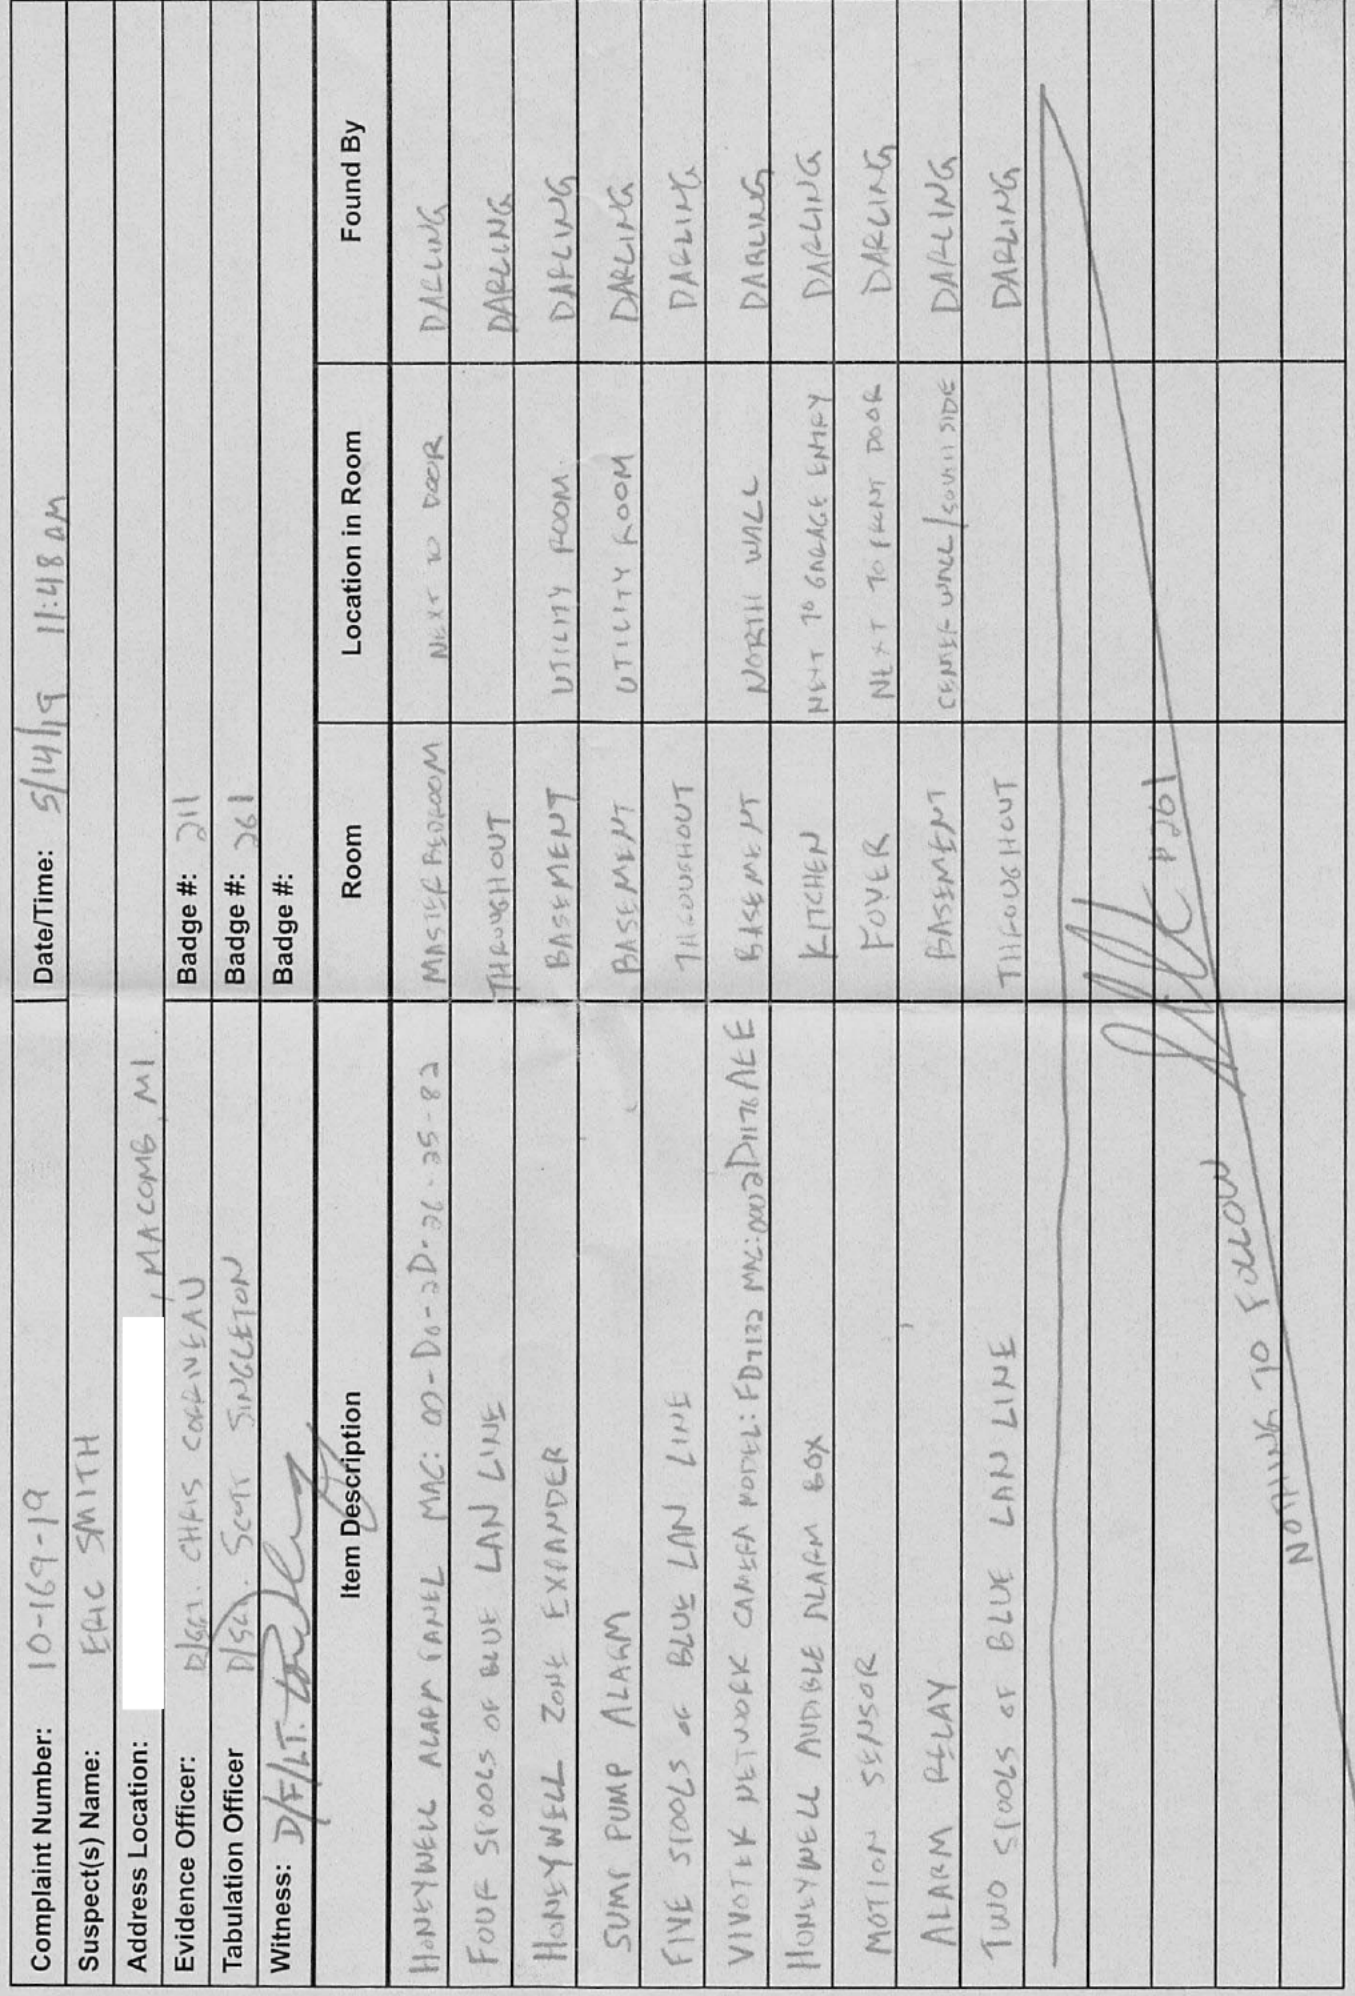 Complaint Number: 10-169-19 Date/Time: 5/14/19 11:48 AM
Suspect(s) Name: ERIC SMITH
Address Location: , MACOMB, MI
Evidence Officer: D/SGT. CHRIS CORRIVEAU Badge #: 211
Tabulation Officer D/SGT. SCOTT SINGLETON Badge #: 261
Witness: D/F/LT. Badge #:
Item Description Room Location in Room Found By
HONEYWELL ALARM PANEL MAC: 00-D0-2D-26-25-82 MASTER BEDROOM NEXT TO DOOR DARLING
FOUR SPOOLS OF BLUE LAN LINE THROUGHOUT DARLING
HONEYWELL ZONE EXPANDER BASEMENT UTILITY ROOM DARLING
SUMP PUMP ALARM BASEMENT UTILITY ROOM DARLING
FIVE SPOOLS OF BLUE LAN LINE THROUGHOUT DARLING
VIVOTEK NETWORK CAMERA MODEL: FD7132 MAC: BASEMENT NORTH WALL DARLING
HONEYWELL AUDIBLE ALARM BOX KITCHEN NEXT TO GARAGE ENTRY DARLING
MOTION SENSOR FOYER NEXT TO FRONT DOOR DARLING
ALARM RELAY BASEMENT CENTER WALL/SOUTH SIDE DARLING
TWO SPOOLS OF BLUE LAN LINE THROUGHOUT DARLING
NOTHING TO FOLLOW